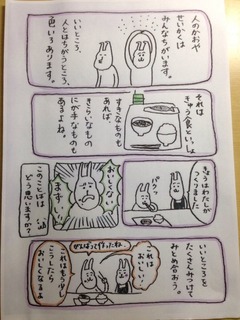 人のかおや
せいかくは
みんなちがいます。
いいところ、
人とはちがうところ、
色いろあります。
それは
きゅう食といっしょ
すきなものも
あれば、
きらいなもの
にが手なものも
あるよね。
きょうはわたしが
つくりました
パクッ
おいしくない
ます…い
このことば
どう思いますか?
いいところを
たくさんみつけて
みとめ合おう。
これは
おいしい!
ぜんぶ作ったね
これはもう少し
こうしたら
おいしくなるよ